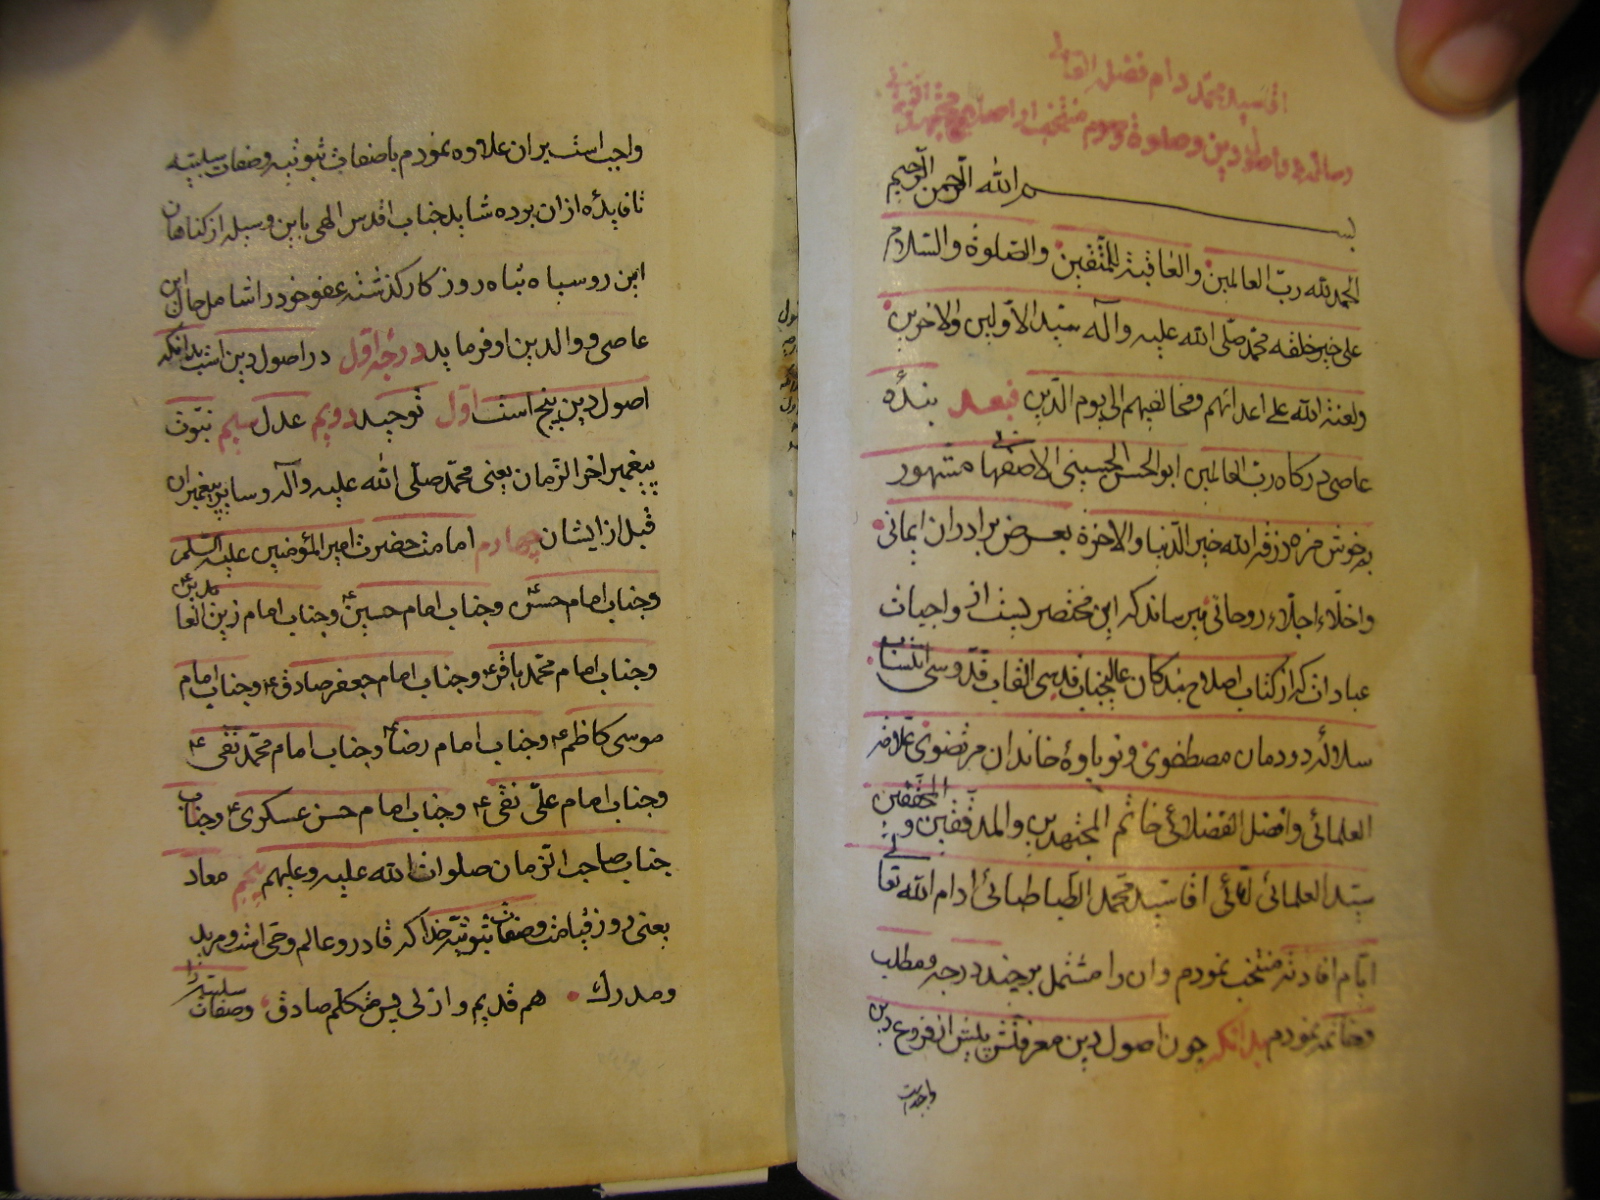 اقا سید محمد دام فضل العا
رساله در اصول دین وصلوة وصوم منتخب از اصلاح
بسم الله الرحمن الرحیم
الحمد لله رب العالمین والعاقبة للمتقین والصلوة والسلام
علی خیر خلقه محمد صلی الله علیه وآله سید الاولین والاخرین
ولعنة الله علی اعدائهم ومخالفیهم الی یوم الدین فبعد بنده
عاصی درکاه رب العالمین ابو الحسن الحسینی الاصفهانی مشهور
بخوش مزه رزقه الله خیر الدنیا والاخرة بعرض برادران ایمانی
واخلاء اجلاء روحانی میرساند که این مختصریست از واجبات
عبادات که از کتاب اصلاح بندکان عالیجناب قدسی القاب قدوسی انتساب
سلاله دودمان مصطفوی ونوباوۀ خاندان مرتضوی علامة
العلمائی وافضل الفضلائی خاتم المجتهدین والمدققین والمحققین
سید العلمائی اقائی اقا سید محمد الطباطبائی ادام الله تعالی
ایام افادته منتخب نمودم وان را مشتمل بر چند درجه ومطلب
وخاتمه نمودم بدانکه چون اصول دین معرفتش پیش از فروع دین
واجب است
واجب است بران علاوه نمودم باصفات ثبوتیه وصفات سلبیه
تا فایده از ان برده شاید جناب اقدس الهی باین وسیله از کناهان
این روسیاه تباه روز کار کذشته عفو خود را شامل حال این
عاصی ووالدین او فرماید درجۀ اول در اصول دین است بدانکه
اصول دین پنج است اول توحید دویم عدل سیم نبوت
پیغمبر اخر الزمان یعنی محمد صلی الله علیه وآله وسایر پیغمبران
قبل از ایشان چهارم امامت حضرت امیر المؤمنین علیه السلم
وجناب امام حسن ع وجناب امام حسین ع وجناب امام زین العابدین ع
وجناب امام محمد باقر ع وجناب امام جعفر صادق ع وجناب امام
موسی کاظم ع وجناب امام رضا ع وجناب امام محمد تقی ع
وجناب امام علی نقی ع وجناب امام حسن عسکری ع وجناب
جناب صاحب الزمان صلوات الله علیه وعلیهم پنجم معاد
یعنی روز قیامت وصفات ثبوتیه خدا که قادر وعالم وحی است ومرید
ومدرك هم قدیم وازلی پس متکلم صادق وصفات سلبیه را